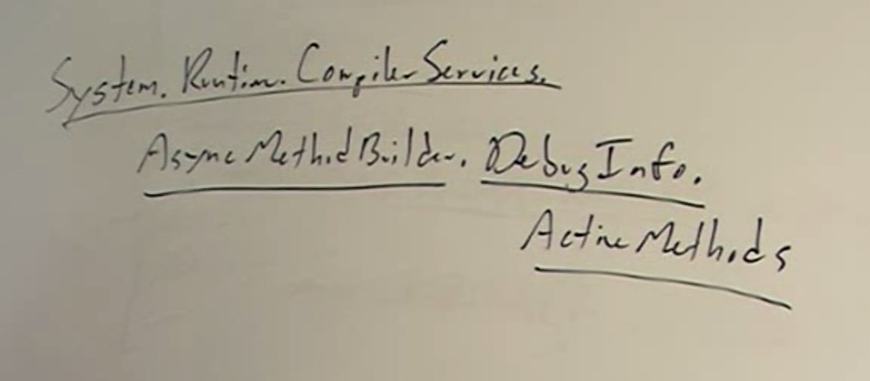 System.Runtime.CompilerServices.
AsyncMethodBuilder.DebugInfo.
ActiveMethods